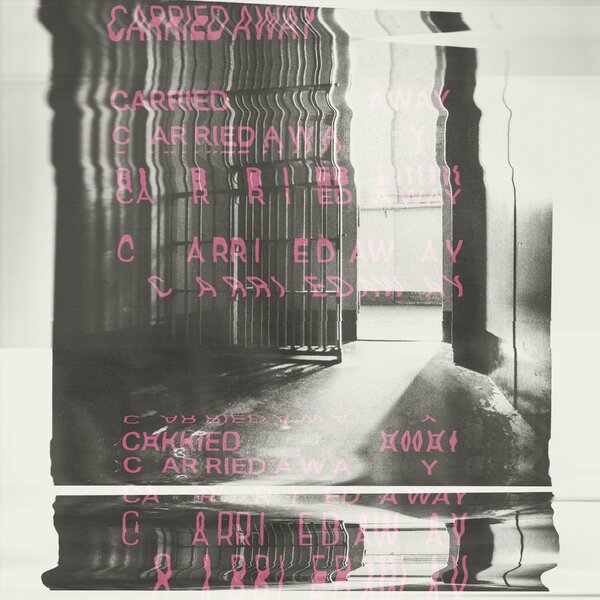 CARRIED AWAY
CARRIED AWAY
C ARRIEDAWA Y
CA R R I ED AWAY
C ARRI EDAW AY
C ARRI EDAW AY
C ARRIEDAWA Y
CARRIED
C ARRIEDAWA Y
CA R R I ED AWAY
C ARRI EDAW AY
ARRI EDAW AY